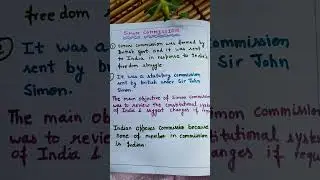 freedom
SIMON COMMISSION
① Simon commission was formed by
British govt. and it was sent
to India in response to India's
freedom struggle.
② It was a statutory commission
sent by British under Sir John
Simon.
The main objective of Simon Commission
was to review the constitutional system
of India & suggest changes if
Indian opposes commission because
none of member in commission
is Indian.
It was a
sent by
Simon.
commission
Sir John
The main
was to revie
of India
Commission
system
if requi